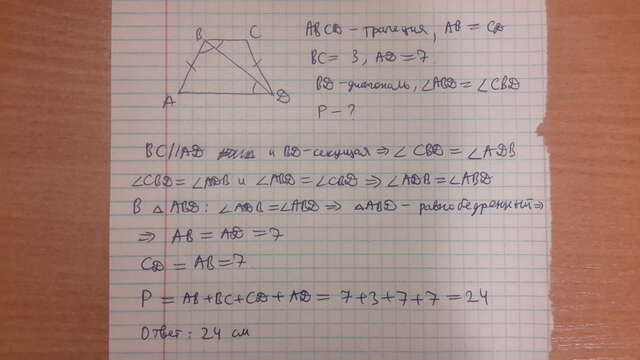 B C
A D
ABCD - трапеция, AB = CD
BC = 3, AD = 7
BD - диагональ, ∠ABD = ∠CBD
P - ?
BC // AD и BD - секущая ⇒ ∠CBD = ∠ADB
∠CBD = ∠ADB и ∠ABD = ∠CBD ⇒ ∠ADB = ∠ABD
В △ABD: ∠ADB = ∠ABD ⇒ △ABD - равнобедренный ⇒
⇒ AB = AD = 7
CD = AB = 7
P = AB + BC + CD + AD = 7 + 3 + 7 + 7 = 24
Ответ: 24 см